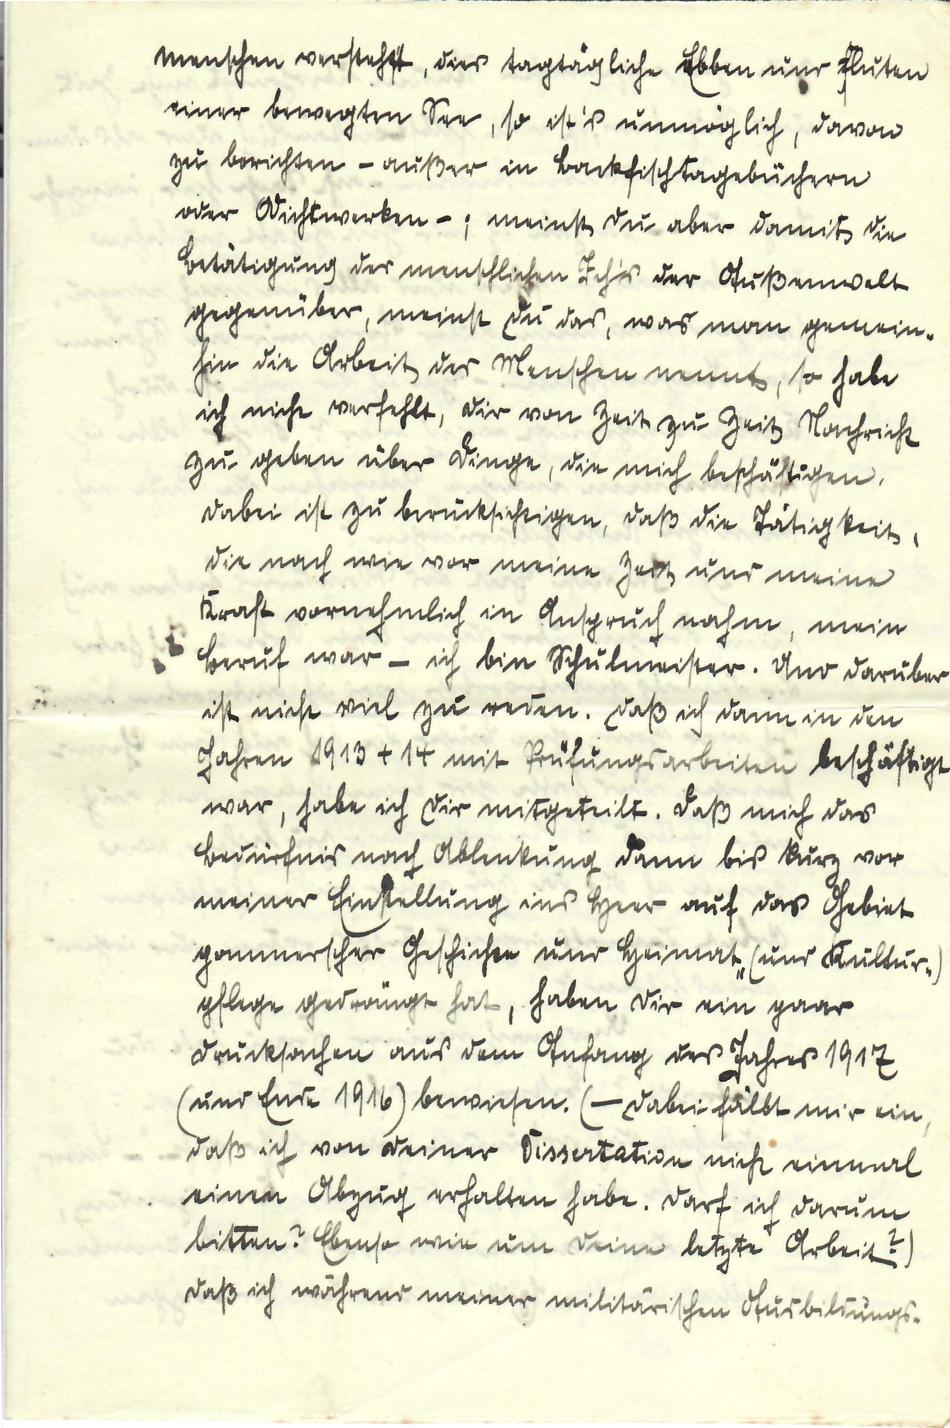 Menschen verstehst, dies tagtägliche Ebben und Fluten
einer bewegten See, so ist's unmöglich, davon
zu berichten – außer in Backfischtagebüchern
oder Dichtwerken –; meinst Du aber damit die
Betätigung des menschlichen Ich's der Außenwelt
gegenüber, meinst Du das, was man gemein-
hin die Arbeit des Menschen nennt, so habe
ich nicht verfehlt, Dir von Zeit zu Zeit Nachricht
zu geben über Dinge, die mich beschäftigen.
Dabei ist zu berücksichtigen, daß die Tätigkeit,
die nach wie vor meine Zeit und meine
Kraft vornehmlich in Anspruch nahm, mein
Beruf war – ich bin Schulmeister. Und darüber
ist nicht viel zu reden. Daß ich dann in den
Jahren 1913 + 14 mit Prüfungsarbeiten beschäftigt
war, habe ich Dir mitgeteilt. Daß mich das
Bedürfnis nach Ablenkung dann bis kurz vor
meiner Einstellung ins Heer auf das Gebiet
pommerscher Geschichte und Heimat- (und Kultur-)
pflege gedrängt hat, haben Dir ein paar
Drucksachen aus dem Anfang des Jahres 1917
(und Ende 1916) bewiesen. (– Dabei fällt mir ein,
daß ich von Deiner Dissertation nicht einmal
einen Abzug erhalten habe. Darf ich darum
bitten? Ebenso wie um Deine letzte Arbeit?)
Daß ich während meiner militärischen Ausbildungs-